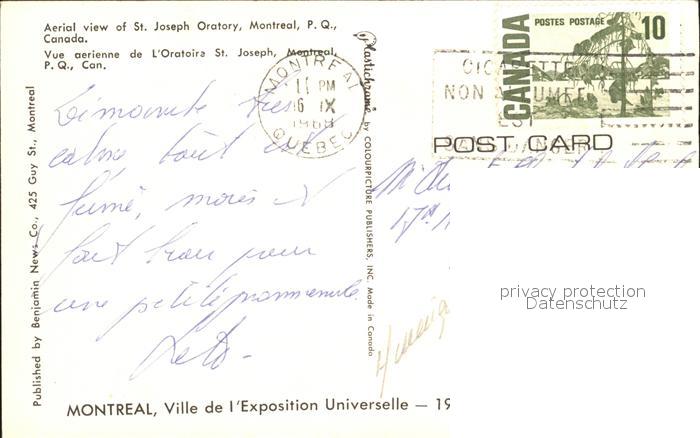 Aerial view of St. Joseph Oratory, Montreal, P. Q.,
Canada.
Vue aerienne de L'Oratoire St. Joseph, Montreal,
P. Q., Can.
Published by Benjamin News Co., 425 Guy St., Montreal
Plastichrome by COLOURPICTURE PUBLISHERS, INC. Made in Canada
MONTREAL
11 PM
IX
QUEBEC
CANADA
POSTES POSTAGE
10
NON
POST CARD
calme tout est
fermé, mais il
fait beau pour
une petite promenade.
privacy protection
Datenschutz
MONTREAL, Ville de l'Exposition Universelle — 19